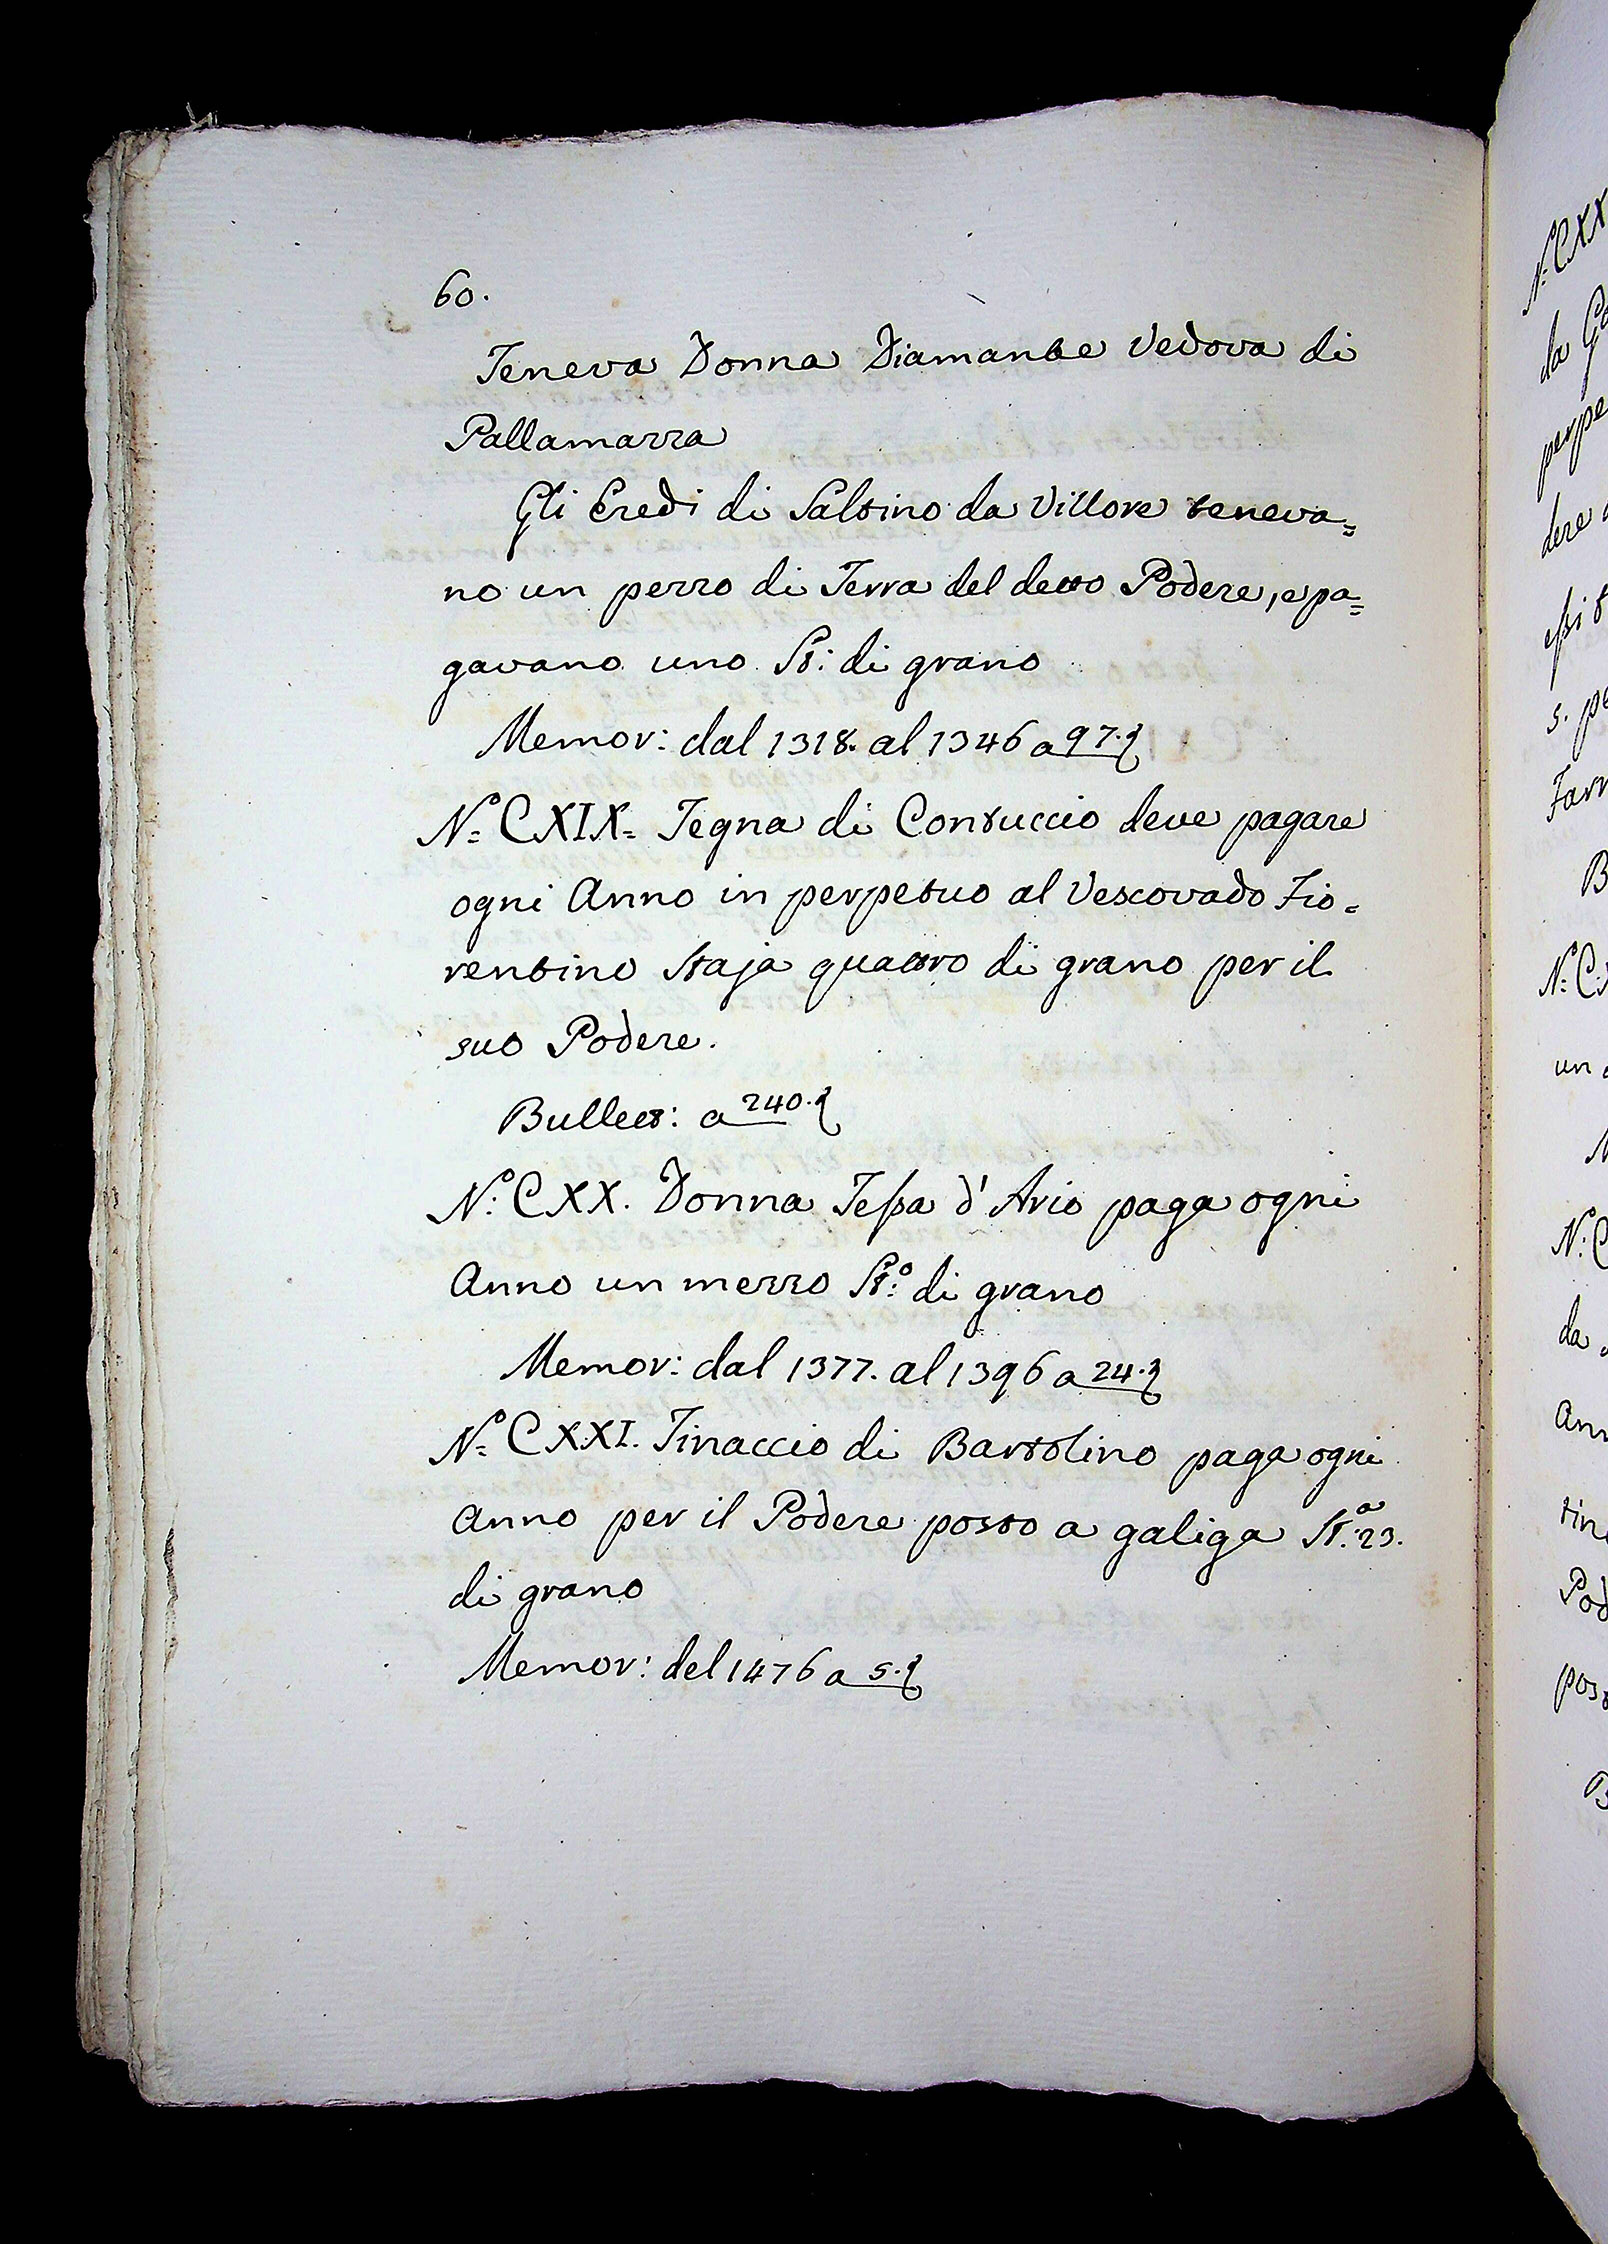 60.
Teneva Donna Diamante Vedova di
Pallamazza
Gli Eredi di Saltino da Villore teneva=
no un pezzo di Terra del detto Podere, e pa=
gavano uno St: di grano
Memor: dal 1318. al 1346 a 97.
N.º CXIX. Tegna di Contuccio deve pagare
ogni Anno in perpetuo al Vescovado Fio=
rentino Staja quattro di grano per il
suo Podere.
Bullett: a 240.
N.º CXX. Donna Tessa d' Ario paga ogni
Anno un mezzo St.º di grano
Memor: dal 1377. al 1396 a 24.
N.º CXXI. Tinaccio di Bartolino paga ogni
Anno per il Podere posto a galiga St.ª 23.
di grano
Memor: del 1476 a 5.
N.º CXX
da
perpe
dere
essi
s. pe
N.º
un
N.º C
da
Ann
tin
Pod
post